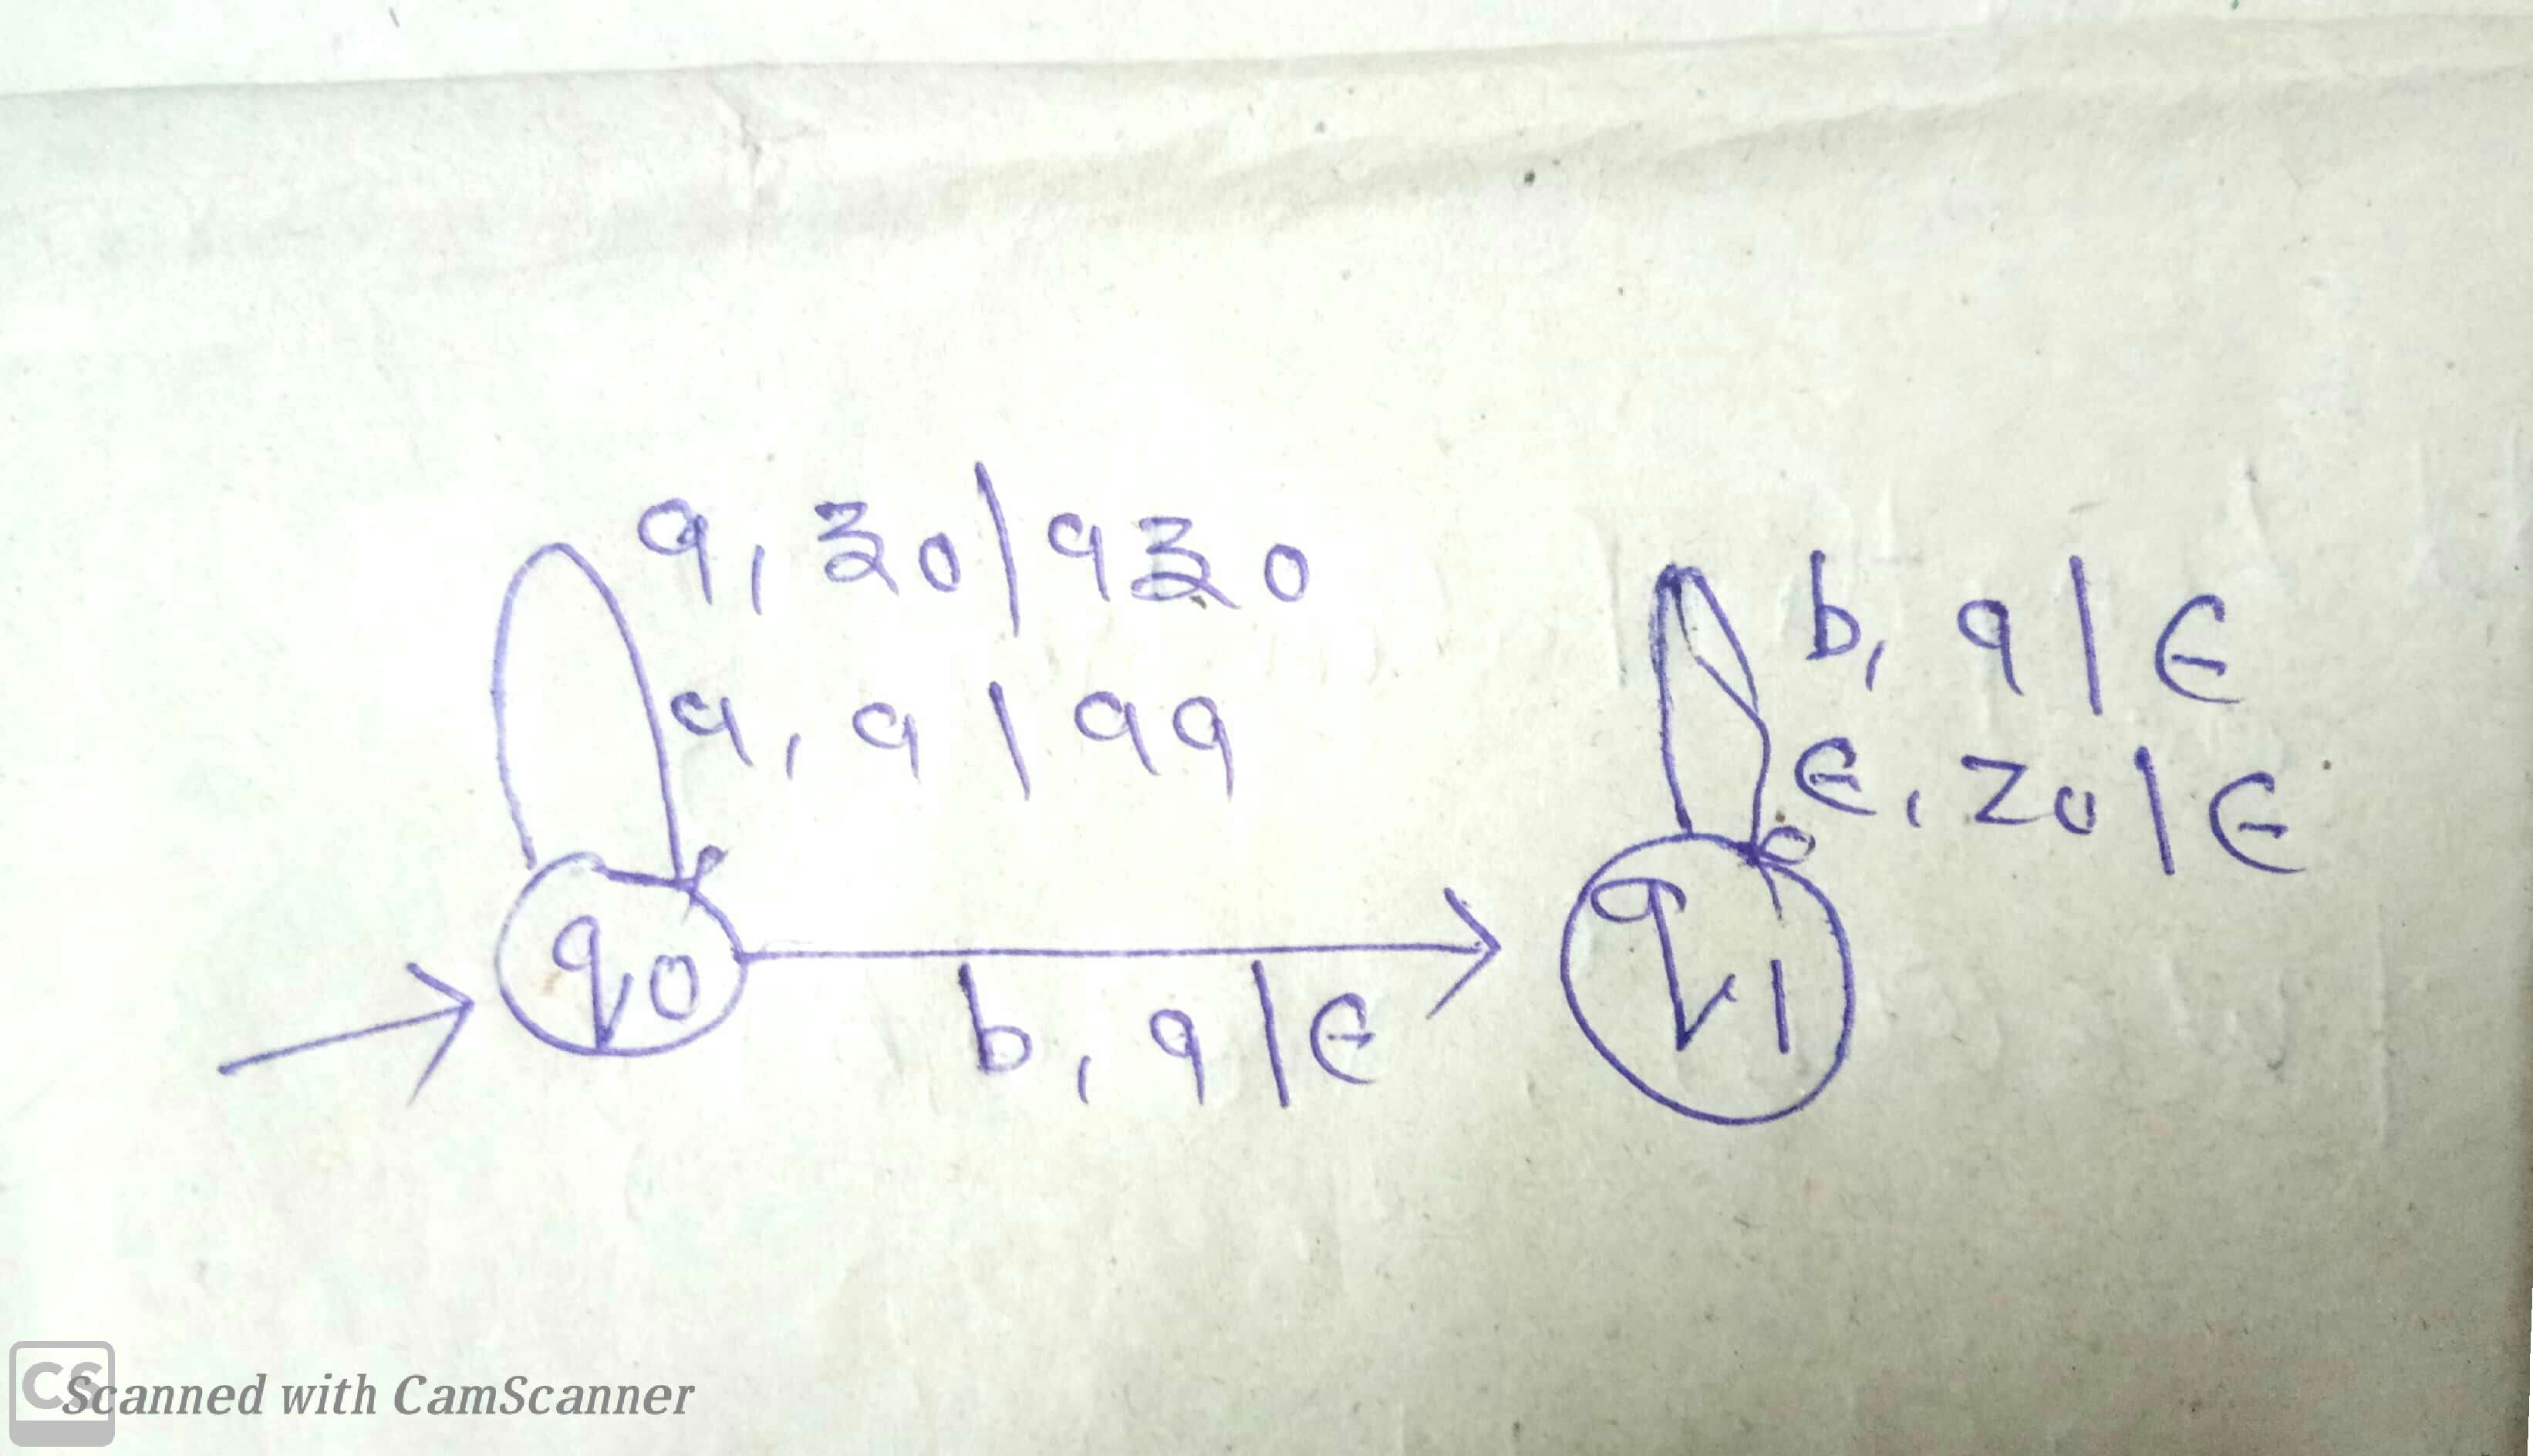 a, z0 | a z0
a, a | aa
b, a | ε
ε, z0 | ε
q0
b, a | ε
q1
CS
Scanned with CamScanner